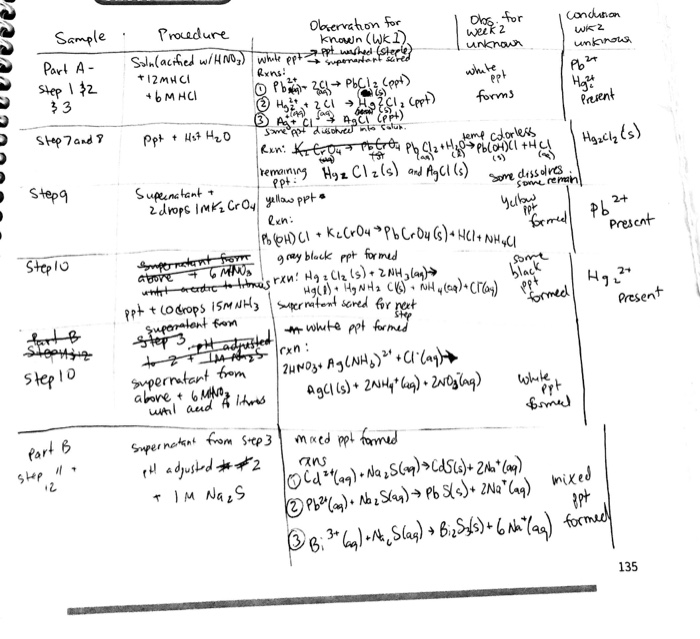 Sample
Procedure
Observation for known (WK1)
Obs. for week 2 unknown
Conclusion wk2 unknown
Part A -
Step 1 $2
$ 3
Soln (acrified w/HNO3)
+ 12 M HCl
+ 6 M HCl
white ppt → ppt washed (step 4)
→ supernatant saved
Rxns:
① Pb2+(aq) + 2Cl → PbCl2 (ppt)
② Hg2 2+ + 2 Cl → Hg2Cl2 (ppt)
③ Ag + Cl → AgCl (ppt)
white ppt forms
Pb2+
Hg2 2+
Present
Step 7 and 8
ppt + Hot H2O
some ppt dissolved into soln.
Rxn: K2CrO4 → PbCrO4 PbCl2 + H2O → Pb(OH)Cl + HCl
remaining ppt: Hg2Cl2 (s) and AgCl (s)
temp colorless
some dissolves
some remain
Hg2Cl2 (s)
Step 9
Supernatant +
2 drops 1M K2CrO4
yellow ppt
Rxn:
Pb(OH)Cl + K2CrO4 → PbCrO4(s) + HCl + NH4Cl
Yellow ppt formed
Pb2+
Present
Step 10
Supernatant from
above + 6 M HNO3
until acidic to litmus
ppt + 10 drops 15M NH3
gray black ppt formed
rxn: Hg2Cl2(s) + 2NH3(aq) →
Hg(l) + HgNH2Cl(s) + NH4(aq) + Cl(aq)
Supernatant saved for next step
some black ppt formed
Hg2 2+
Present
Part B
Step 11 + 12
supernatant from
step 3, pH adjusted
to 2 + 1M Na2S
Step 10
supernatant from
above + 6 M HNO3
until acid to litmus
white ppt formed
rxn:
2HNO3 + Ag(NH3)2+ + Cl-(aq) →
AgCl(s) + 2NH4+(aq) + 2NO3-(aq)
white ppt formed
Part B
step 11 +
12
Supernatant from step 3
pH adjusted 2
+ 1M Na2S
mixed ppt formed
rxns
① Cd2+(aq) + Na2S(aq) → CdS(s) + 2Na+(aq)
② Pb2+(aq) + Na2S(aq) → PbS(s) + 2Na+(aq)
③ Bi3+(aq) + Na2S(aq) → Bi2S3(s) + 6Na+(aq)
mixed ppt formed
135